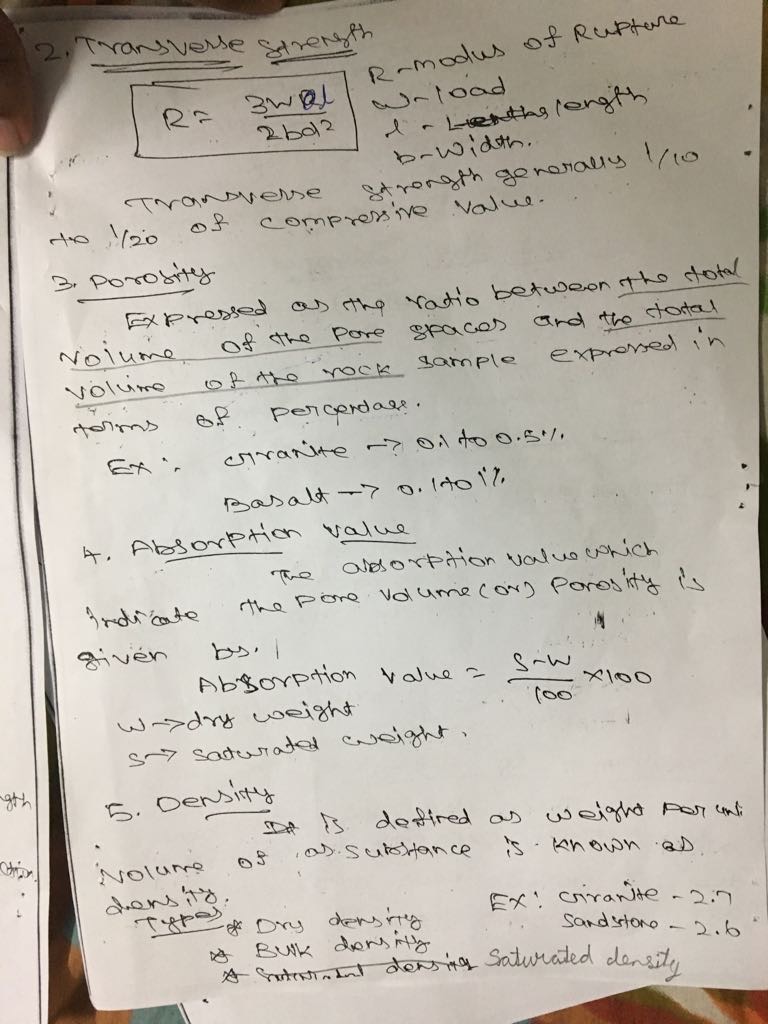 2. Transverse strength
R = 3wl / 2bd²
R - modus of Rupture
w - load
l - length
b - width.
Transverse strength generally 1/10
to 1/20 of compressive value.
3. Porosity
Expressed as the ratio between the total
volume of the pore spaces and the total
volume of the rock sample expressed in
terms of percentage.
Ex: Granite → 0.1 to 0.5%.
Basalt → 0.1 to 1%
4. Absorption value
The absorption value which
indicate the pore volume (or) porosity is
given by.
Absorption value = S-W / 100 × 100
w → dry weight
s → saturated weight.
5. Density
It is defined as weight per uni
volume of as substance is known as
density.
Ex: Granite - 2.7
Sandstone - 2.6
Types * Dry density
* Bulk density
* Saturated density
gth